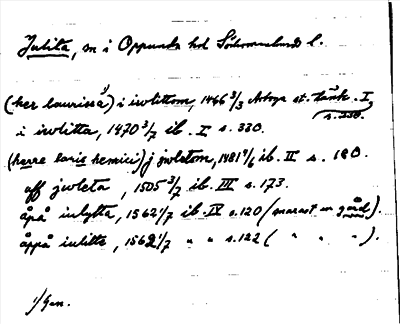 Julita, sn i Oppunda hd Södermanlands l.
(her laurissa) i iwlittom, 1466 3/3 Arboga st. tänk. I,
s. 330.
i iwlitta, 1470 3/7 ib. I s. 330.
(herre laris hemici) j jwletom, 1481 1/6 ib. II s. 180.
aff jwleta, 1505 3/7 ib. III s. 173.
åpå iulytta, 1562 1/7 ib. IV s. 120 (narast en gård).
åppå iulitta, 1562 1/7 " " s. 122 ( " " " ).